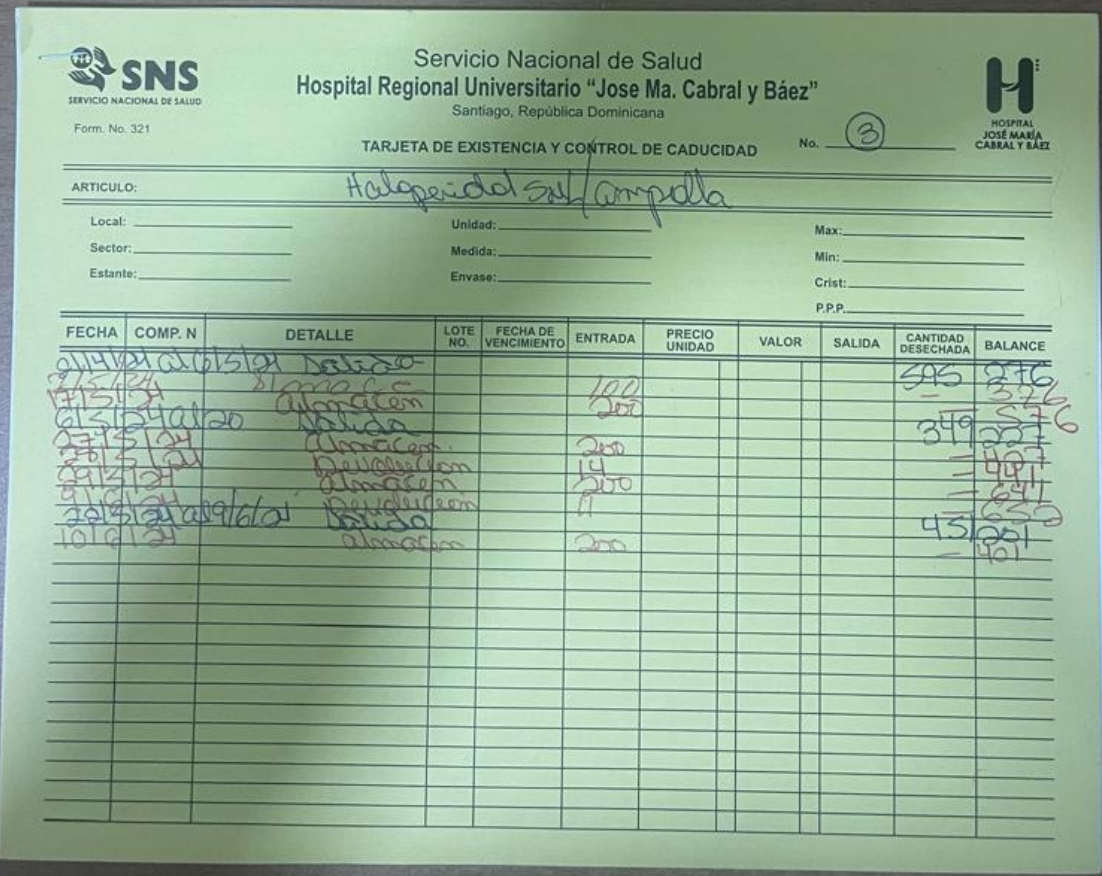 SNS
SERVICIO NACIONAL DE SALUD
Form. No. 321
Servicio Nacional de Salud
Hospital Regional Universitario “Jose Ma. Cabral y Báez”
Santiago, República Dominicana
HOSPITAL
JOSÉ MARÍA
CABRAL Y BÁEZ
TARJETA DE EXISTENCIA Y CONTROL DE CADUCIDAD No. 3
ARTICULO: Haloperidol / ampolla
Local: Unidad: Max:
Sector: Medida: Min:
Estante: Envase: Crist:
P.P.P.
FECHA COMP. N DETALLE LOTE NO. FECHA DE VENCIMIENTO ENTRADA PRECIO UNIDAD VALOR SALIDA CANTIDAD DESECHADA BALANCE
Salida 276
almacen 100 - 376
17/5/24 almacen 200 - 576
Salida 349 227
27/5/24 almacen 200 - 427
28/5/24 Devolucion 14 - 441
29/5/24 almacen 200 - 641
Devolucion
Salida 451 201
almacen 200 - 401